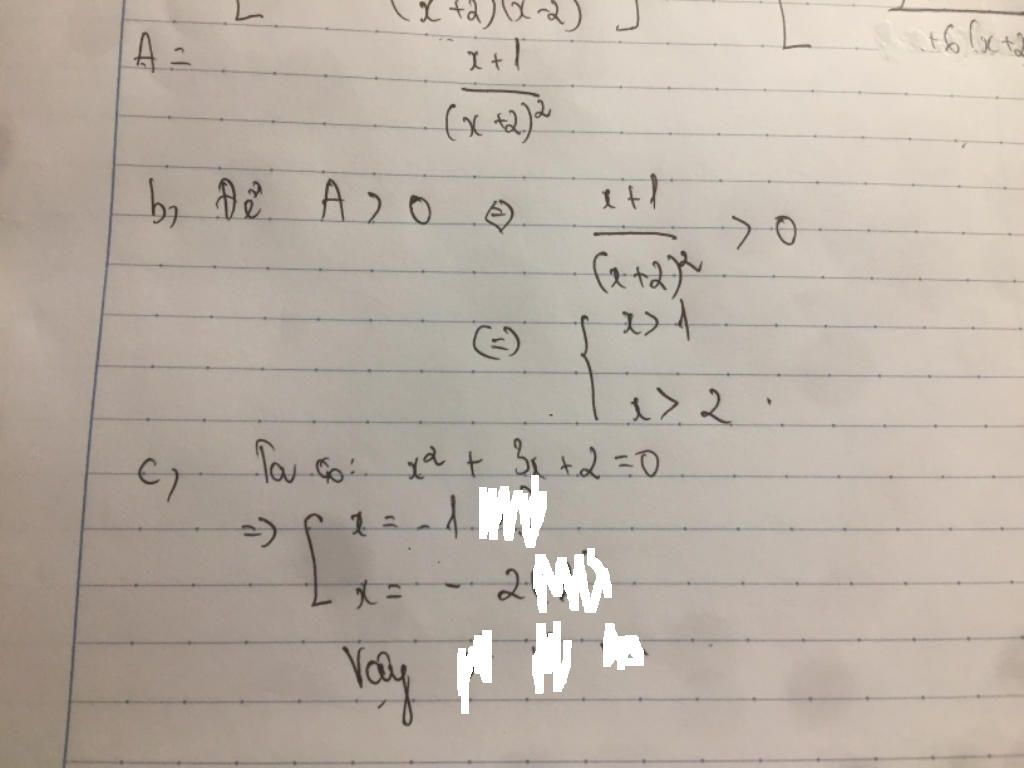 (x+2)(x-2)
+6(x+2
A = \frac{x+1}{(x+2)^2}
b, Để A > 0 ⇔ \frac{x+1}{(x+2)^2} > 0
(=) { x > 1
x > 2 .
c, Ta có: x² + 3x + 2 = 0
=> [ x = -1
x = - 2
Vậy